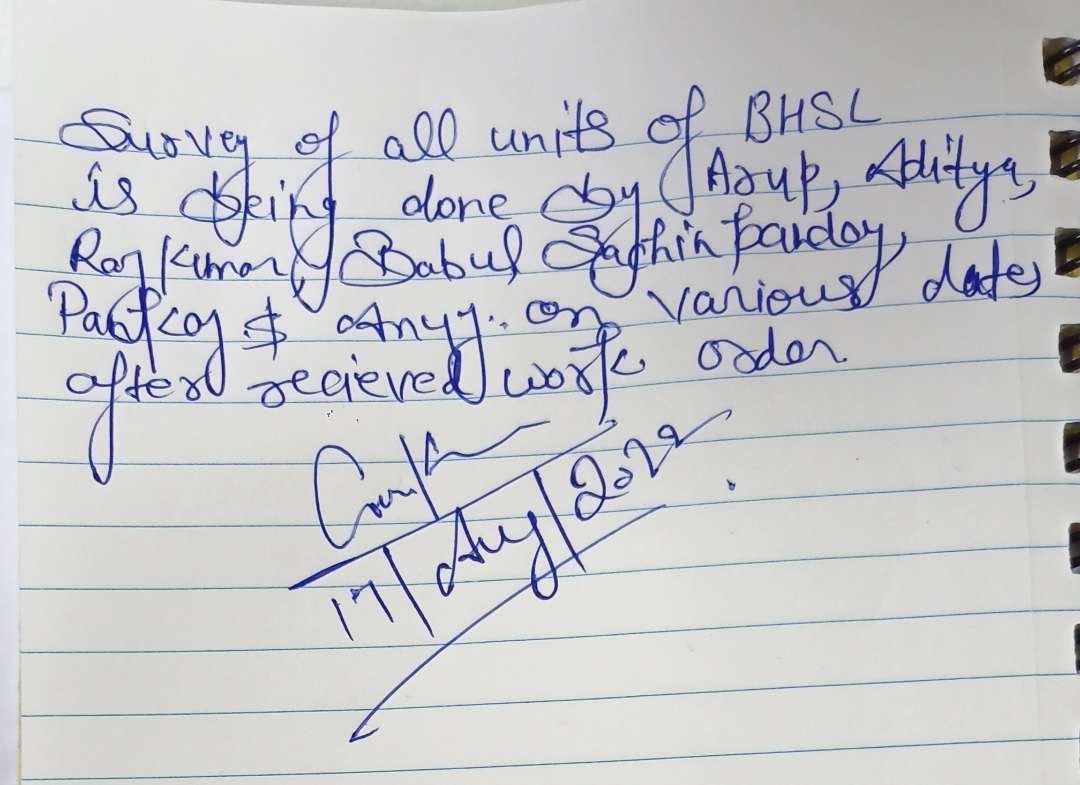 Survey of all units of BHSL
is being done by Arup, Aditya,
Raj Kumar, Babul Sachin Panday,
Pankaj & on various dates
after recieved work order
17/Aug/2022